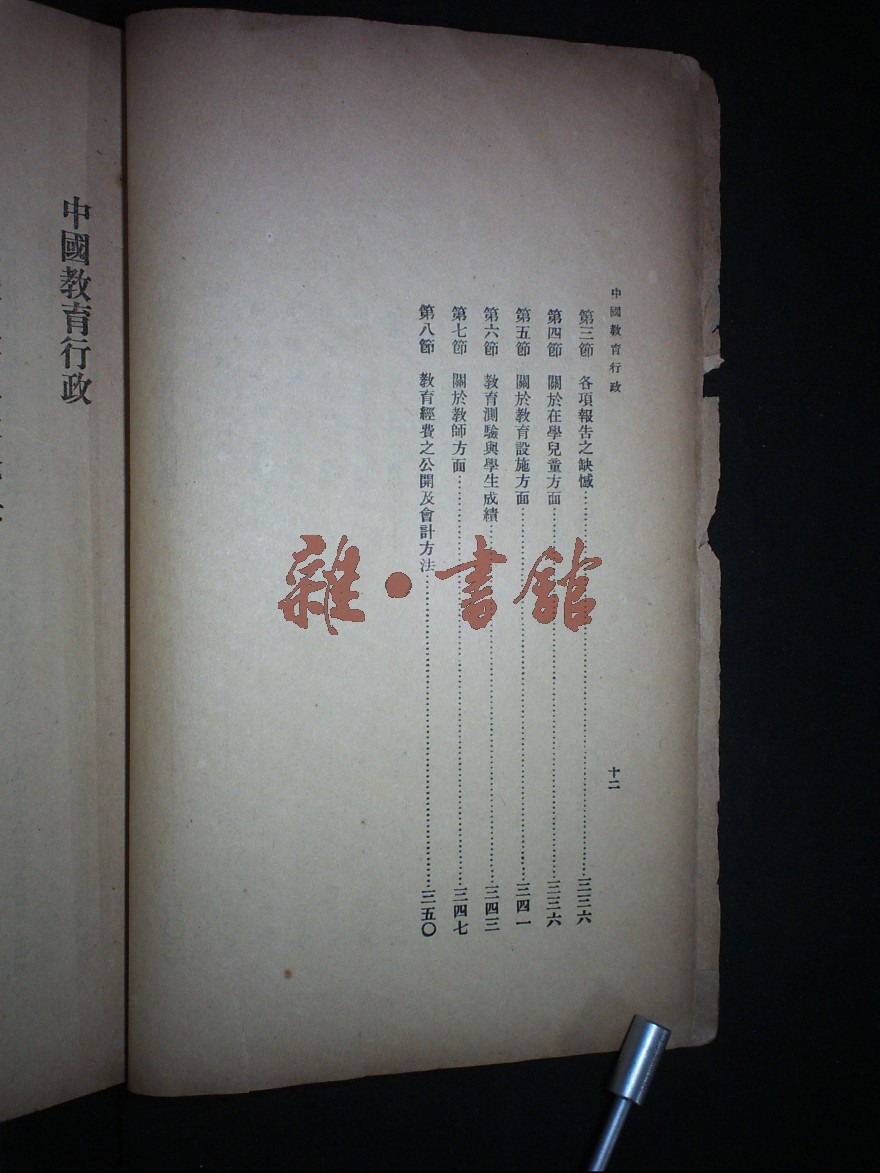 中國教育行政
十二
第三節　各項報告之缺憾…………三三六
第四節　關於在學兒童方面…………三三六
第五節　關於教育設施方面…………三四一
第六節　教育測驗與學生成績…………三四三
第七節　關於教師方面…………三四七
第八節　教育經費之公開及會計方法…………三五〇
雜·書館
中國教育行政